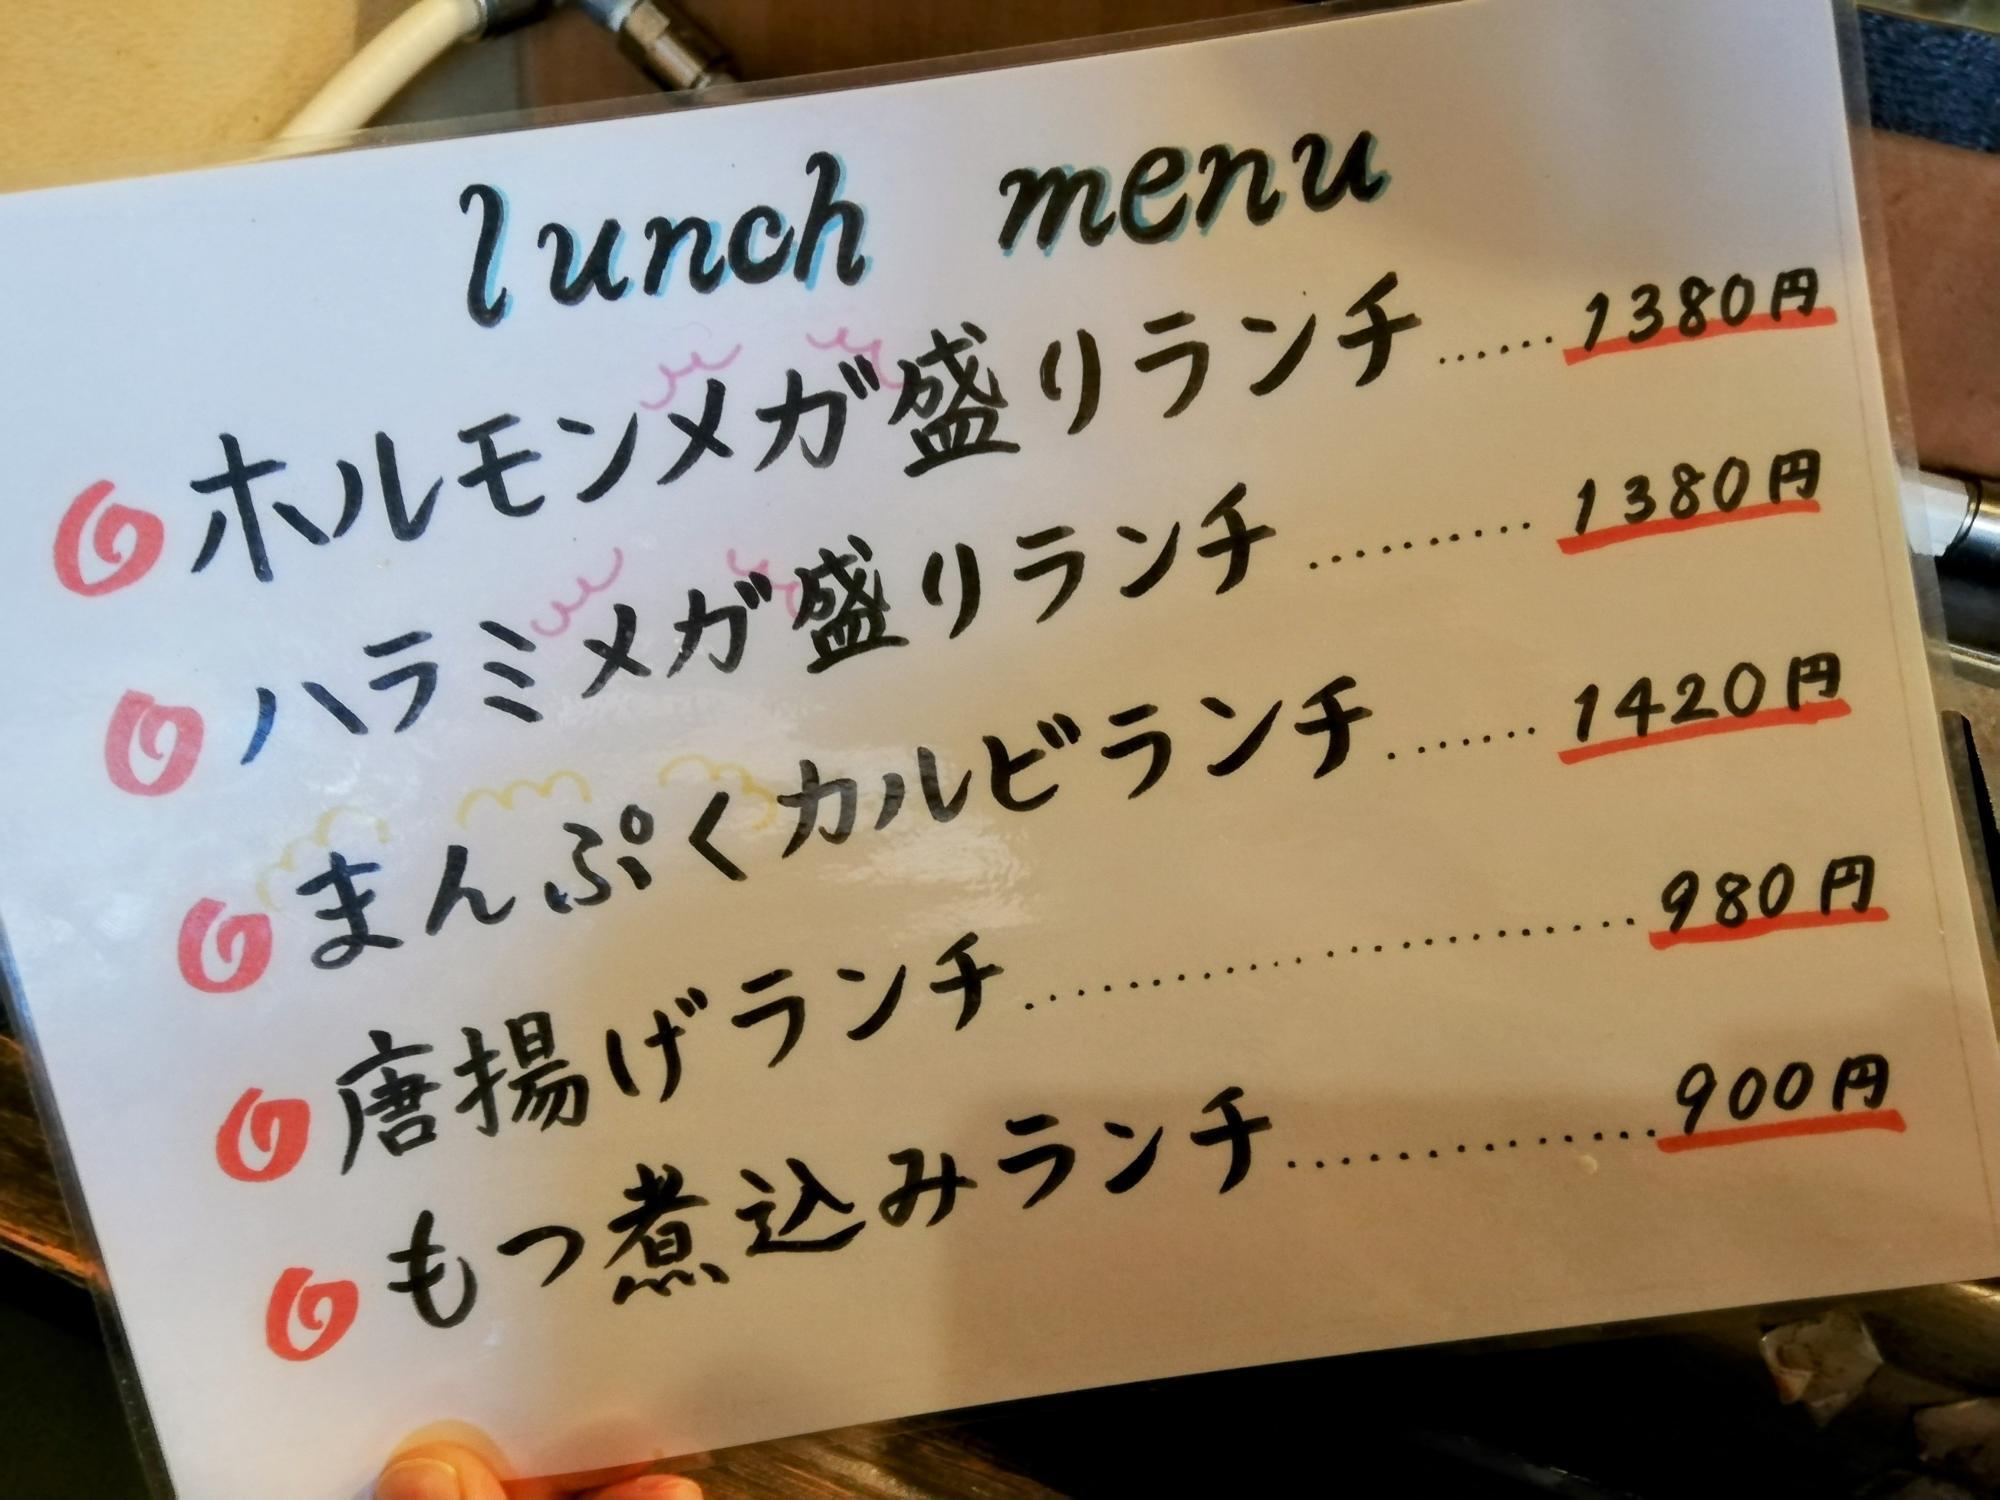 lunch menu
ホルモンメガ盛りランチ……1380円
ハラミメガ盛りランチ………1380円
まんぷくカルビランチ……1420円
唐揚げランチ………………980円
もつ煮込みランチ…………900円